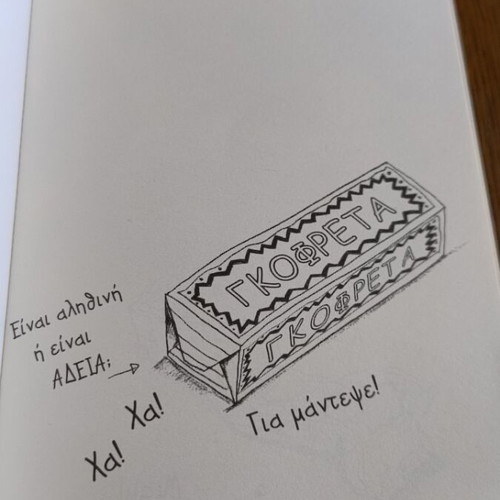 ΓΚΟΦΡΕΤΑ
ΓΚΟΦΡΕΤΑ
Είναι αληθινή
ή είναι
ΑΔΕΙΑ;
Χα!
Χα!
Για μάντεψε!